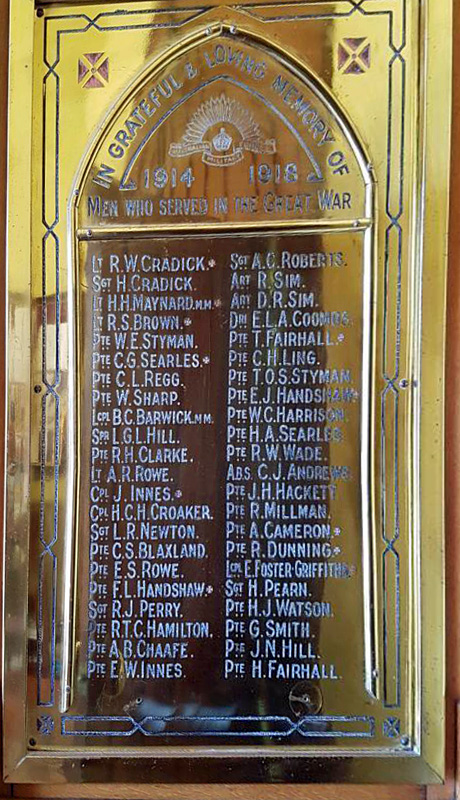 IN GRATEFUL & LOVING MEMORY OF
AUSTRALIAN
MILITARY
1914 1918
MEN WHO SERVED IN THE GREAT WAR
LT R.W. CRADICK.
SGT H. CRADICK.
LT H.H. MAYNARD. M.M.
LT R.S. BROWN.
PTE W.E. STYMAN.
PTE C.G. SEARLES.
PTE C.L. REGG.
PTE W. SHARP.
LCPL B.C. BARWICK. M.M.
SPR L.G.L. HILL.
PTE R.H. CLARKE.
LT A.R. ROWE.
CPL J. INNES.
CPL H.C.H. CROAKER.
SGT L.R. NEWTON.
PTE C.S. BLAXLAND.
PTE E.S. ROWE.
PTE F.L. HANDSHAW
SGT R.J. PERRY.
PTE R.T.C. HAMILTON.
PTE A.B. CHAAFE.
PTE E.W. INNES.
SGT A.C. ROBERTS.
ART R. SIM.
ART D.R. SIM.
DRI E.L.A. COOMBS.
PTE T. FAIRHALL.
PTE C.H. LING.
PTE T.O.S. STYMAN.
PTE E.J. HANDSHAW
PTE W.C. HARRISON.
PTE H.A. SEARLES.
PTE R.W. WADE.
ABS. C.J. ANDREWS.
PTE J.H. HACKETT
PTE R. MILLMAN.
PTE A. CAMERON.
PTE R. DUNNING
LCPL E. FOSTER-GRIFFITHS
SGT H. PEARN.
PTE H.J. WATSON.
PTE G. SMITH.
PTE J.N. HILL.
PTE H. FAIRHALL.